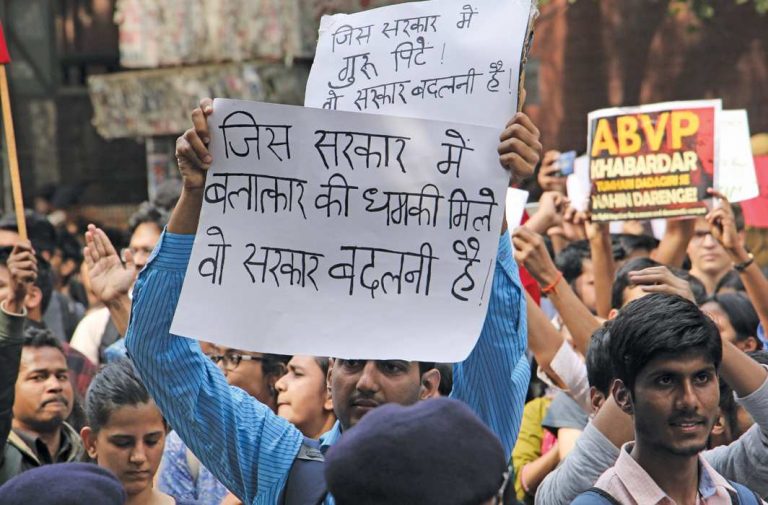 जिस सरकार में
गुरू पिटे!
वो सरकार बदलनी है!
जिस सरकार में
बलात्कार की धमकी मिले
वो सरकार बदलनी है!
ABVP
KHABARDAR
TUMHARI DADAGIRI SE
NAHIN DARENGE!